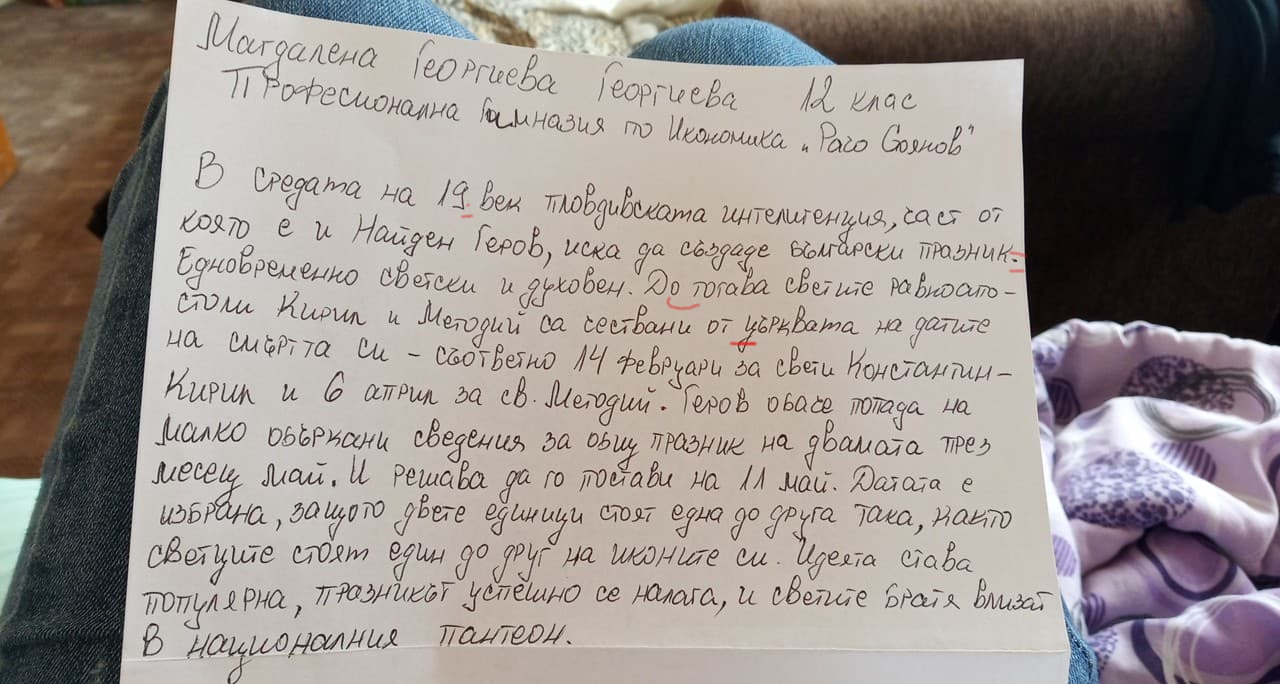 Магдалена Георгиева Георгиева 12 клас
Професионална Гимназия по Икономика „Рачо Соянов“
В средата на 19. век пловдивската интелигенция, част от
която е и Найден Геров, иска да създаде български празник.
Едновременно светски и духовен. До тогава светите равноапо-
столи Кирил и Методий са чествани от църквата на датите
на смъртта си - съответно 14 февруари за свети Константин-
Кирил и 6 април за св. Методий. Геров обаче попада на
малко объркани сведения за общ празник на двамата през
месец май. И решава да го постави на 11 май. Датата е
избрана, защото двете единици стоят една до друга така, както
светците стоят един до друг на иконите си. Идеята става
популярна, празникът успешно се налага, и светите братя влизат
в националния пантеон.